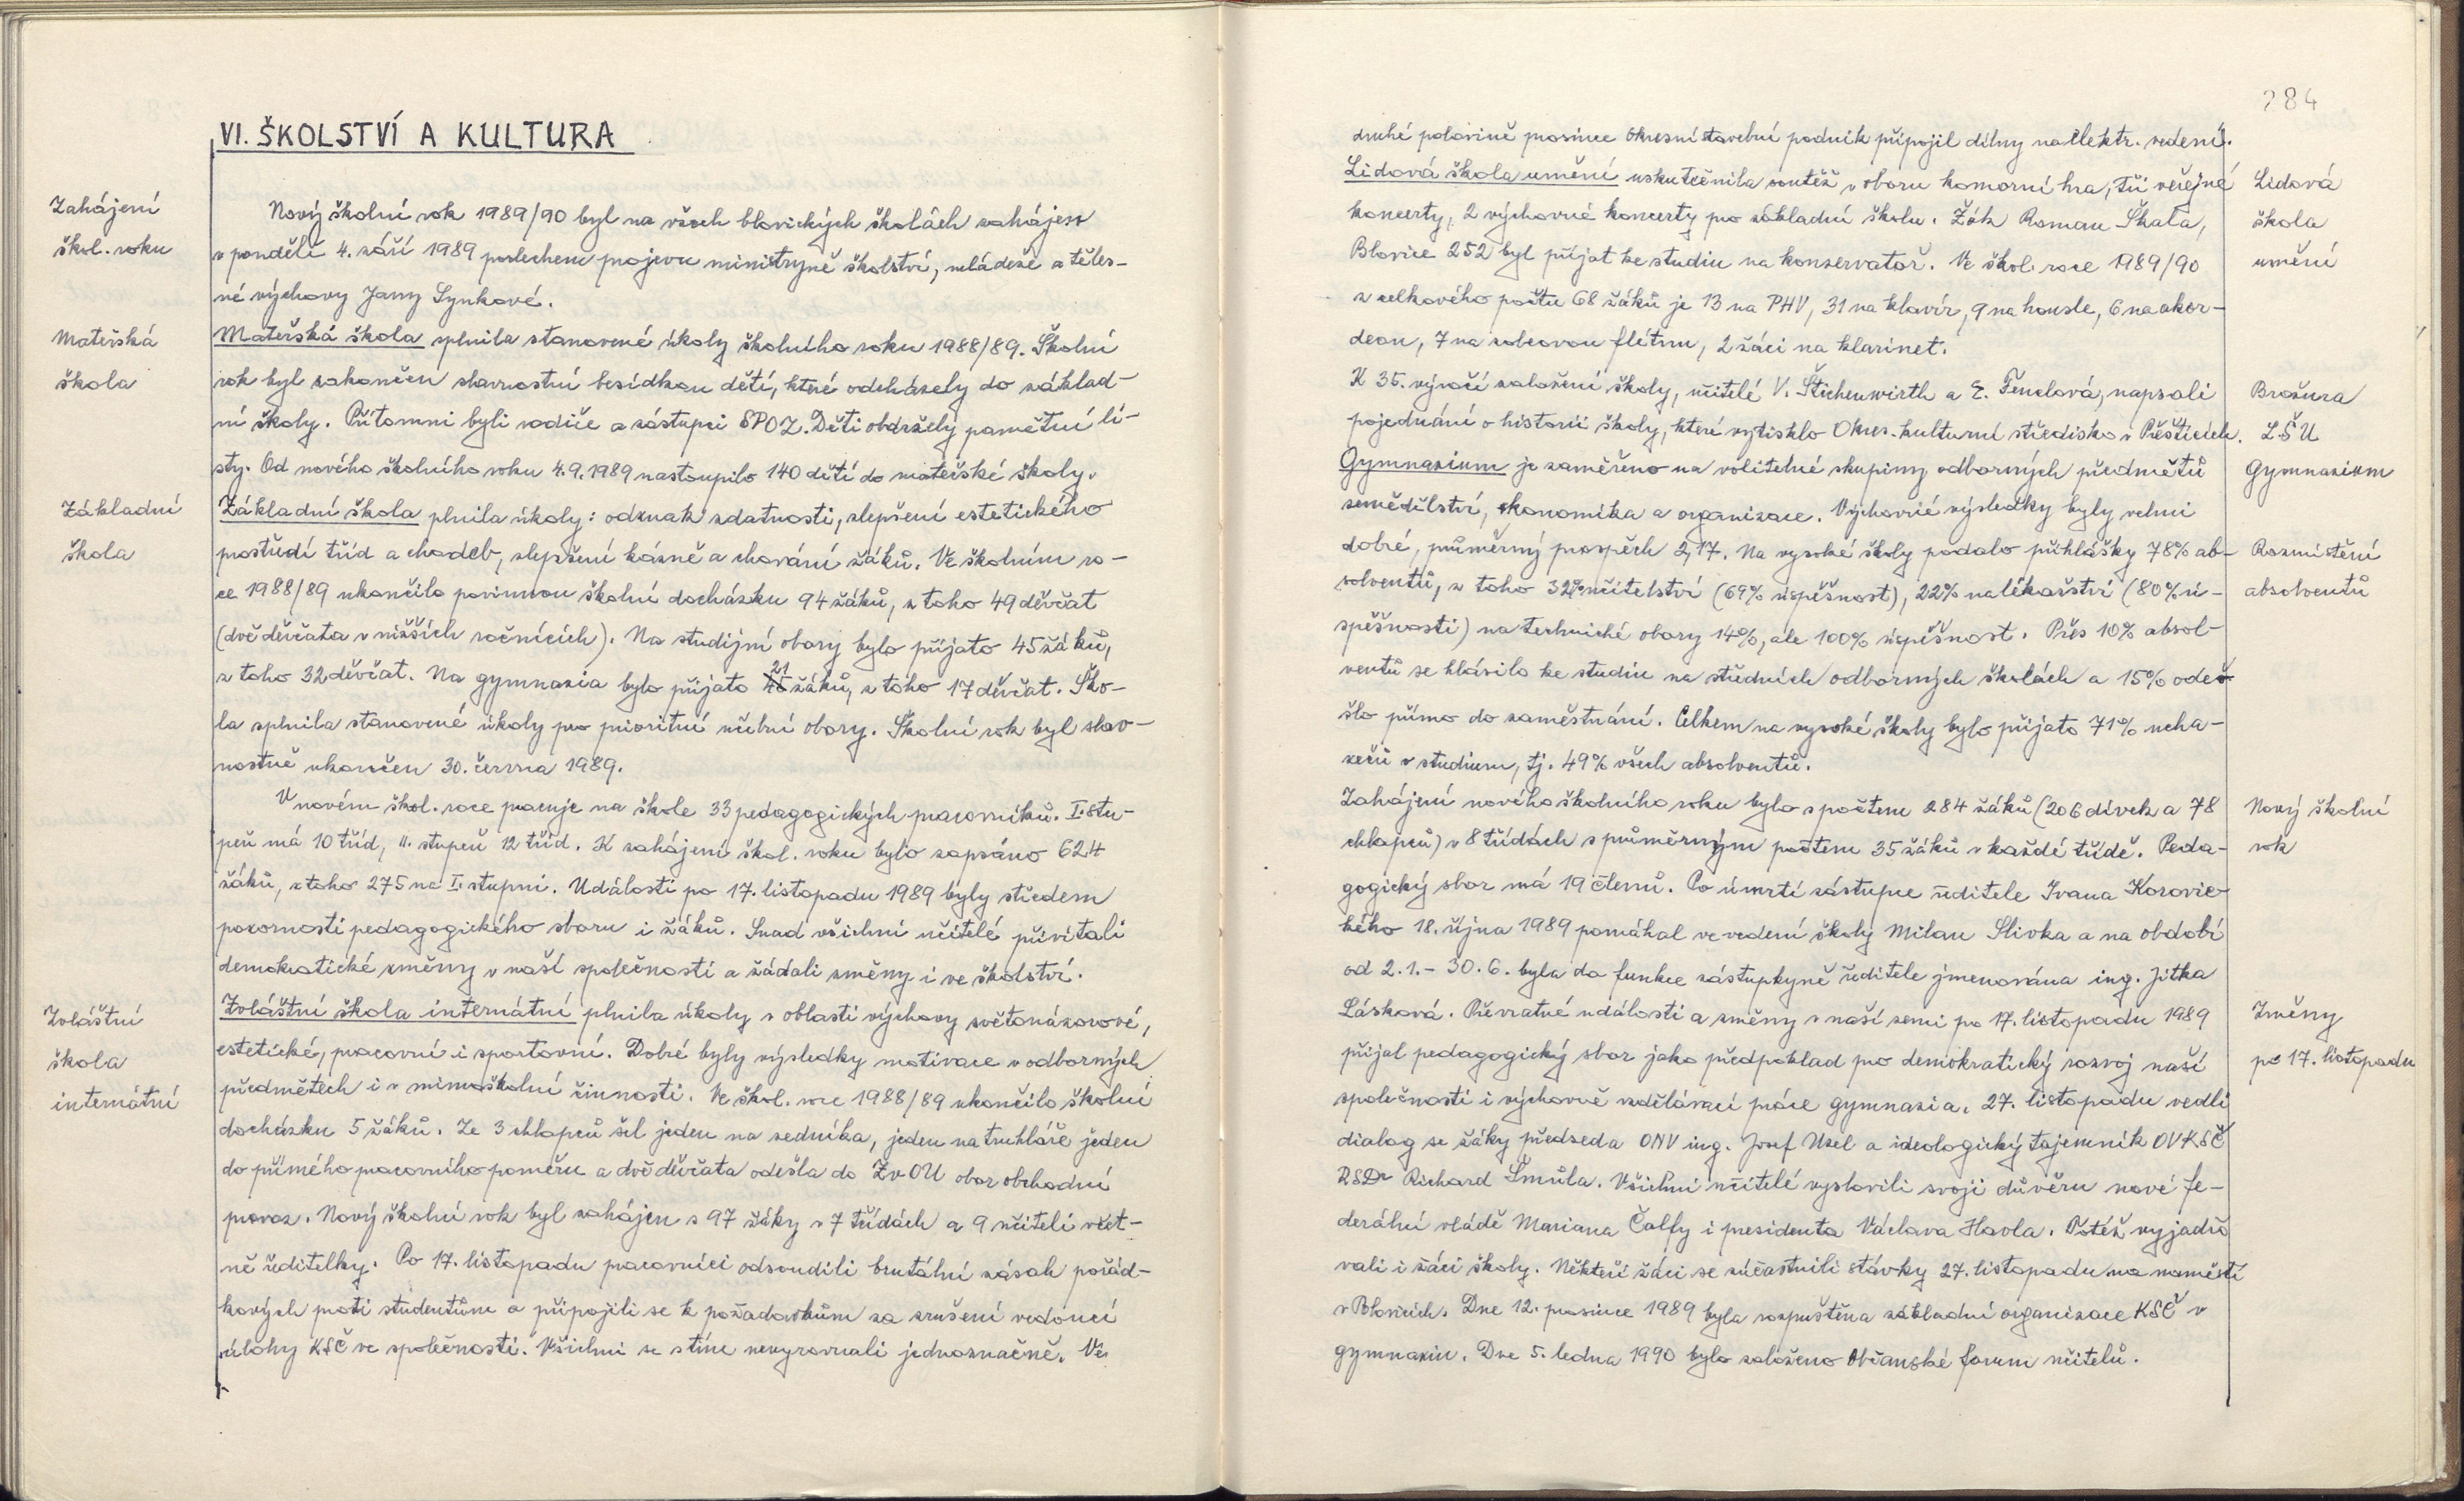 VI. ŠKOLSTVÍ A KULTURA
Zahájení
škol. roku
Nový školní rok 1989/90 byl na všech blovických školách zahájen
v pondělí 4. září 1989 poslechem projevu ministryně školství, mládeže a těles-
né výchovy Jany Synkové.
Mateřská
škola
Mateřská škola splnila stanovené úkoly školního roku 1988/89. Školní
rok byl zakončen slavnostní besídkou dětí, které odcházely do základ-
ní školy. Přítomni byli rodiče a zástupci SPOZ. Děti obdržely pamětní li-
sty. Od nového školního roku 4.9.1989 nastoupilo 140 dětí do mateřské školy.
Základní
škola
Základní škola plnila úkoly: odznak zdatnosti, zlepšení estetického
prostředí tříd a chodeb, zlepšení kázně a chování žáků. Ve školním ro-
ce 1988/89 ukončilo povinnou školní docházku 94 žáků, z toho 49 děvčat
(dvě děvčata v nižších ročnících). Na studijní obory bylo přijato 45 žáků,
z toho 32 děvčat. Na gymnazia bylo přijato 21 žáků, z toho 17 děvčat. Ško-
la splnila stanovené úkoly pro prioritní učební obory. Školní rok byl slav-
nostně ukončen 30. června 1989.
V novém škol. roce pracuje na škole 33 pedagogických pracovníků. I. stu-
peň má 10 tříd, II. stupeň 12 tříd. K zahájení škol. roku bylo zapsáno 624
žáků, z toho 275 na I. stupni. Události po 17. listopadu 1989 byly středem
pozornosti pedagogického sboru i žáků. Snad všichni učitelé přivítali
demokratické změny v naší společnosti a žádali změny i ve školství.
Zvláštní
škola
internátní
Zvláštní škola internátní plnila úkoly v oblasti výchovy světonázorové,
estetické, pracovní i sportovní. Dobré byly výsledky motivace v odborných
předmětech i v mimoškolní činnosti. Ve škol. roce 1988/89 ukončilo školní
docházku 5 žáků. Ze 3 chlapců šel jeden na zedníka, jeden na truhláře jeden
do přímého pracovního poměru a dvě děvčata odešla do ZvOU obor obchodní
provoz. Nový školní rok byl zahájen s 97 žáky v 7 třídách a 9 učiteli včet-
ně ředitelky. Po 17. listopadu pracovníci odsoudili brutální zásah pořád-
kových proti studentům a připojili se k požadavkům za zrušení vedoucí
úlohy KSČ ve společnosti. Všichni se s tím nevyrovnali jednoznačně. Ve
284
druhé polovině prosince Okresní stavební podnik připojil dílny na elektr. vedení.
Lidová
škola
umění
Lidová škola umění uskutečnila soutěž v oboru komorní hra, tři veřejné
koncerty, 2 výchovné koncerty pro základní školu. Žák Roman Škala,
Blovice 252 byl přijat ke studiu na konzervatoř. Ve škol. roce 1989/90
z celkového počtu 68 žáků je 13 na PHV, 31 na klavír, 9 na housle, 6 na akor-
deon, 7 na zobcovou flétnu, 2 žáci na klarinet.
Brožura
LŠU
K 35. výročí založení školy, učitelé V. Štichenwirth a E. Fenclová, napsali
pojednání o historii školy, které vytisklo Okres. kulturní středisko v Přešticích.
Gymnazium
Gymnazium je zaměřeno na volitelné skupiny odborných předmětů
zemědělství, ekonomika a organizace. Výchovné výsledky byly velmi
Rozmístění
absolventů
dobré, průměrný prospěch 2,17. Na vysoké školy podalo přihlášky 78% ab-
solventů, z toho 32% učitelství (69% úspěšnost), 22% na lékařství (80% ú-
spěšnosti) na technické obory 14%, ale 100% úspěšnost. Přes 10% absol-
ventů se hlásilo ke studiu na středních odborných školách a 15% ode-
šlo přímo do zaměstnání. Celkem na vysoké školy bylo přijato 71% ucha-
zečů o studium, tj. 49% všech absolventů.
Nový školní
rok
Zahájení nového školního roku bylo s počtem 284 žáků (206 dívek a 78
chlapců) v 8 třídách s průměrným počtem 35 žáků v každé třídě. Peda-
gogický sbor má 19 členů. Po úmrtí zástupce ředitele Ivana Korovic-
kého 18. října 1989 pomáhal ve vedení školy Milan Slivka a na období
od 2.1.- 30.6. byla do funkce zástupkyně ředitele jmenována ing. Jitka
Změny
po 17. listopadu
Lásková. Převratné události a změny v naší zemi po 17. listopadu 1989
přijal pedagogický sbor jako předpoklad pro demokratický rozvoj naší
společnosti i výchovně vzdělávací práce gymnazia. 27. listopadu vedli
dialog se žáky předseda ONV ing. Josef Uzel a ideologický tajemník OVKSČ
RSDr Richard Šmůla. Všichni učitelé vyslovili svoji důvěru nové fe-
derální vládě Mariana Čalfy i presidenta Václava Havla. Totéž vyjadřo
vali i žáci školy. Někteří žáci se zúčastnili stávky 27. listopadu na náměstí
v Blovicích. Dne 12. prosince 1989 byla rozpuštěna základní organizace KSČ v
gymnaziu. Dne 5. ledna 1990 bylo založeno Občanské forum učitelů.